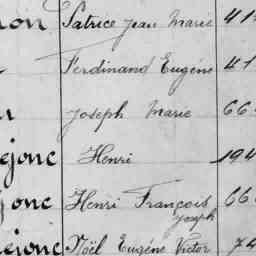 non Patrice Jean Marie 41
Ferdinand Eugène 41
Joseph Marie 66
ejonc Henri 194
jonc Henri François 66
Joseph
ejonc Noël Eugène Victor 74